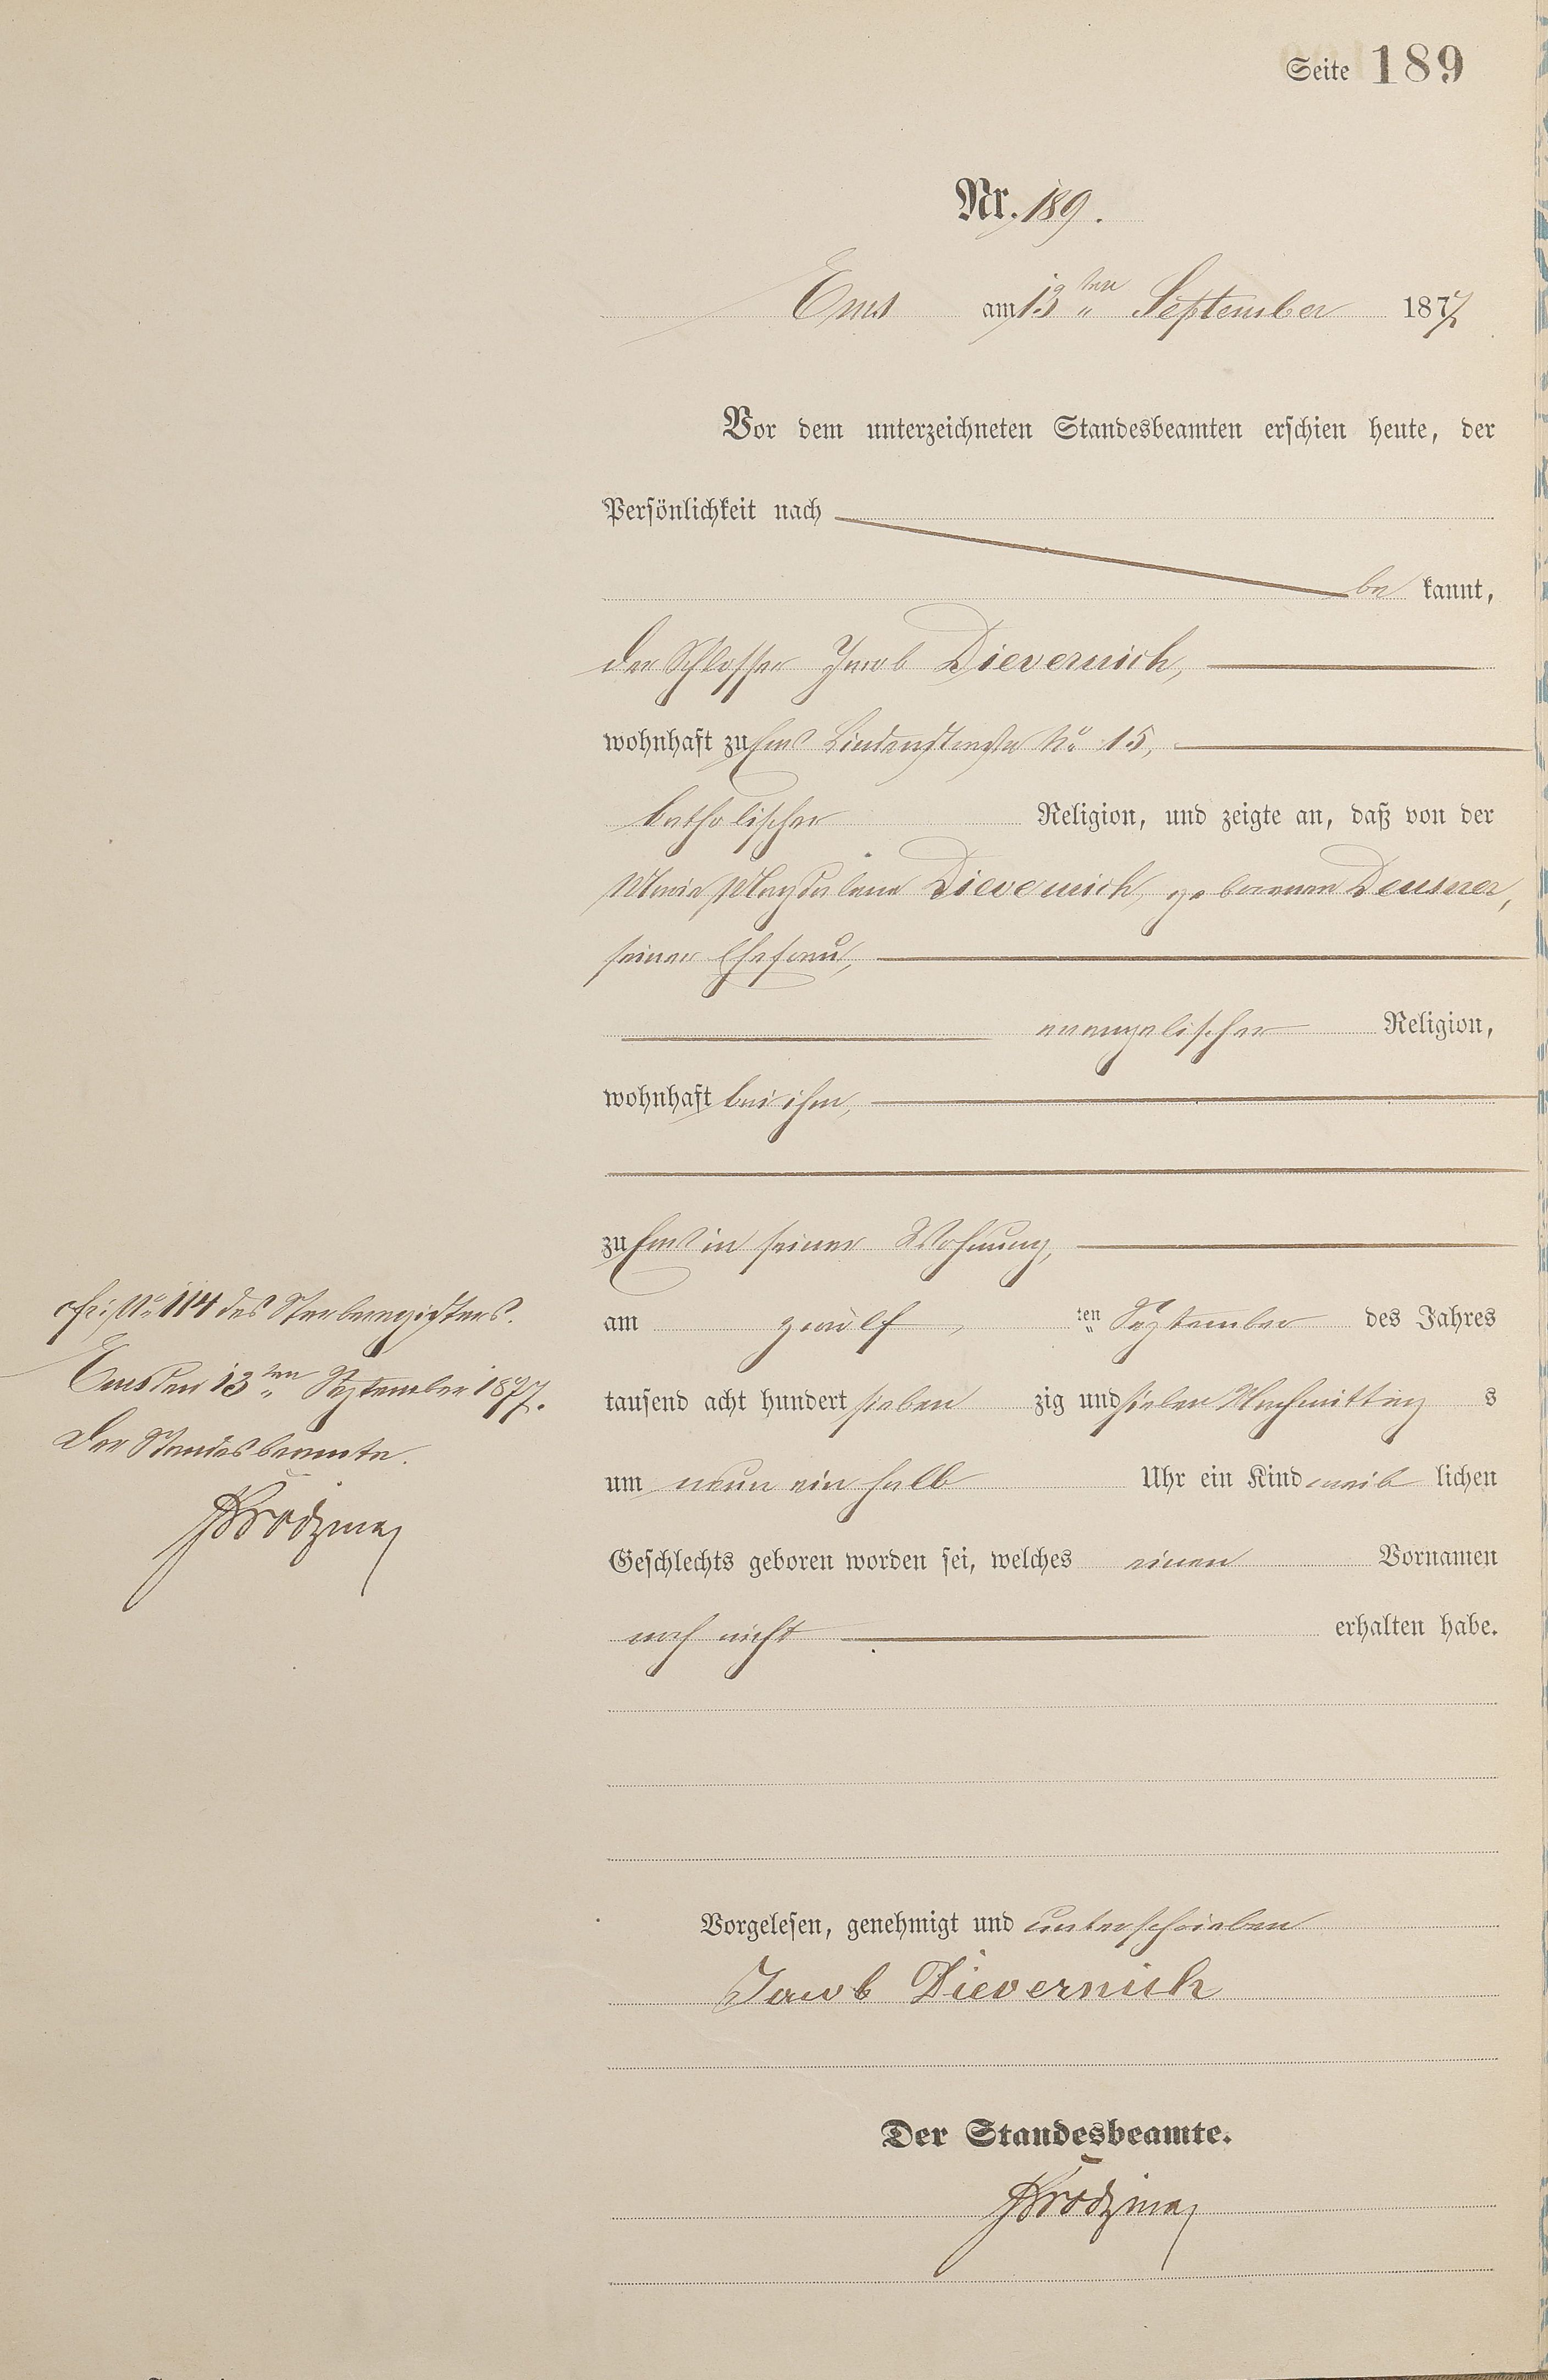 Seite 189
Nr. 189.
Ems am 13ten September 1877
Vor dem unterzeichneten Standesbeamten erschien heute, der
Persönlichkeit nach
be kannt,
der Schlosser Jacob Dievernich,
wohnhaft zu Ems Lindenstraße No 15,
katholischer Religion, und zeigte an, daß von der
Maria Magdalena Dievernich, geborenen Deusner,
seiner Ehefrau,
evangelischer Religion,
wohnhaft bei ihm,
zu Ems in seiner Wohnung,
am zwölf ten September des Jahres
tausend acht hundert sieben zig und sieben Nachmittag s
um neun ein halb Uhr ein Kind weib lichen
Geschlechts geboren worden sei, welches einen Vornamen
noch nicht erhalten habe.
Vorgelesen, genehmigt und unterschrieben
Jacob Dievernich
Der Standesbeamte.
No 114 des Sterberegisters.
Ems den 13ten September 1877.
Der Standesbeamte.